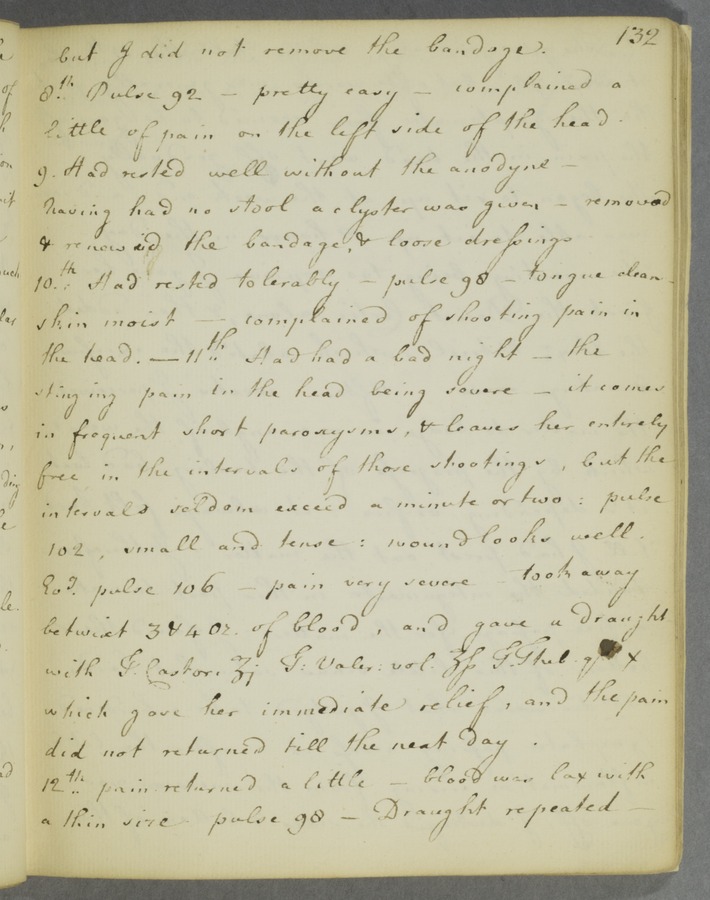 132
but I did not remove the bandage.
8th. Pulse 92 — pretty easy — complained a
little of pain on the left side of the head.
9. Had rested well without the anodyne —
having had no stool a clyster was given — removed
& renewed the bandage, & loose dressings
10th. Had rested tolerably — pulse 98 — tongue clean —
skin moist — complained of shooting pain in
the head. — 11th. Had had a bad night — the
stinging pain in the head being severe — it comes
in frequent short paroxysms, & leaves her entirely
free in the intervals of those shootings, but the
intervals seldom exceed a minute or two : pulse
102, small and tense : wound looks well.
Eod. pulse 106 — pain very severe — took away
betwixt 3 & 4 oz. of blood, and gave a draught
with T. Castor. ʒj T: Valer: vol. ʒſs T. Theb. X
which gave her immediate relief, and the pain
did not returned till the next day.
12th. pain returned a little — blood was lax with
a thin size pulse 98 — Draught repeated —